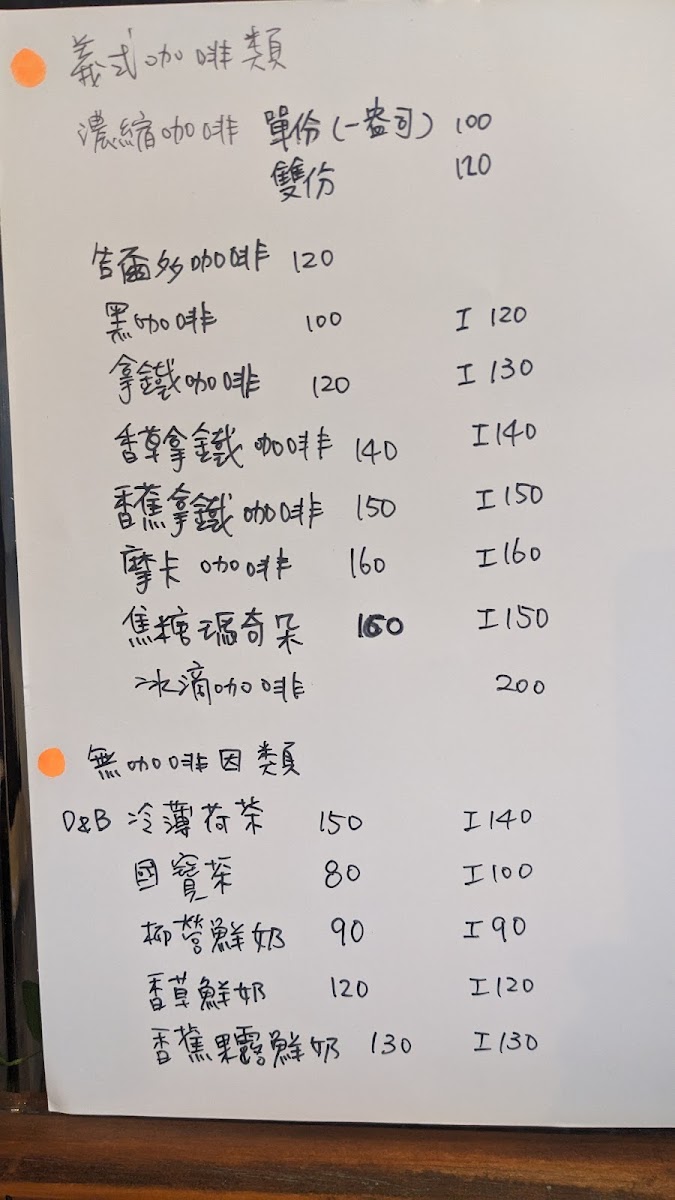 義式咖啡類
濃縮咖啡 單份(一盎司) 100
雙份 120
告爾多咖啡 120
黑咖啡 100 I 120
拿鐵咖啡 120 I 130
香草拿鐵咖啡 140 I 140
香蕉拿鐵咖啡 150 I 150
摩卡咖啡 160 I 160
焦糖瑪奇朵 160 I 150
冰滴咖啡 200
無咖啡因類
D&B 冷薄荷茶 150 I 140
國寶茶 80 I 100
柳營鮮奶 90 I 90
香草鮮奶 120 I 120
香蕉果露鮮奶 130 I 130